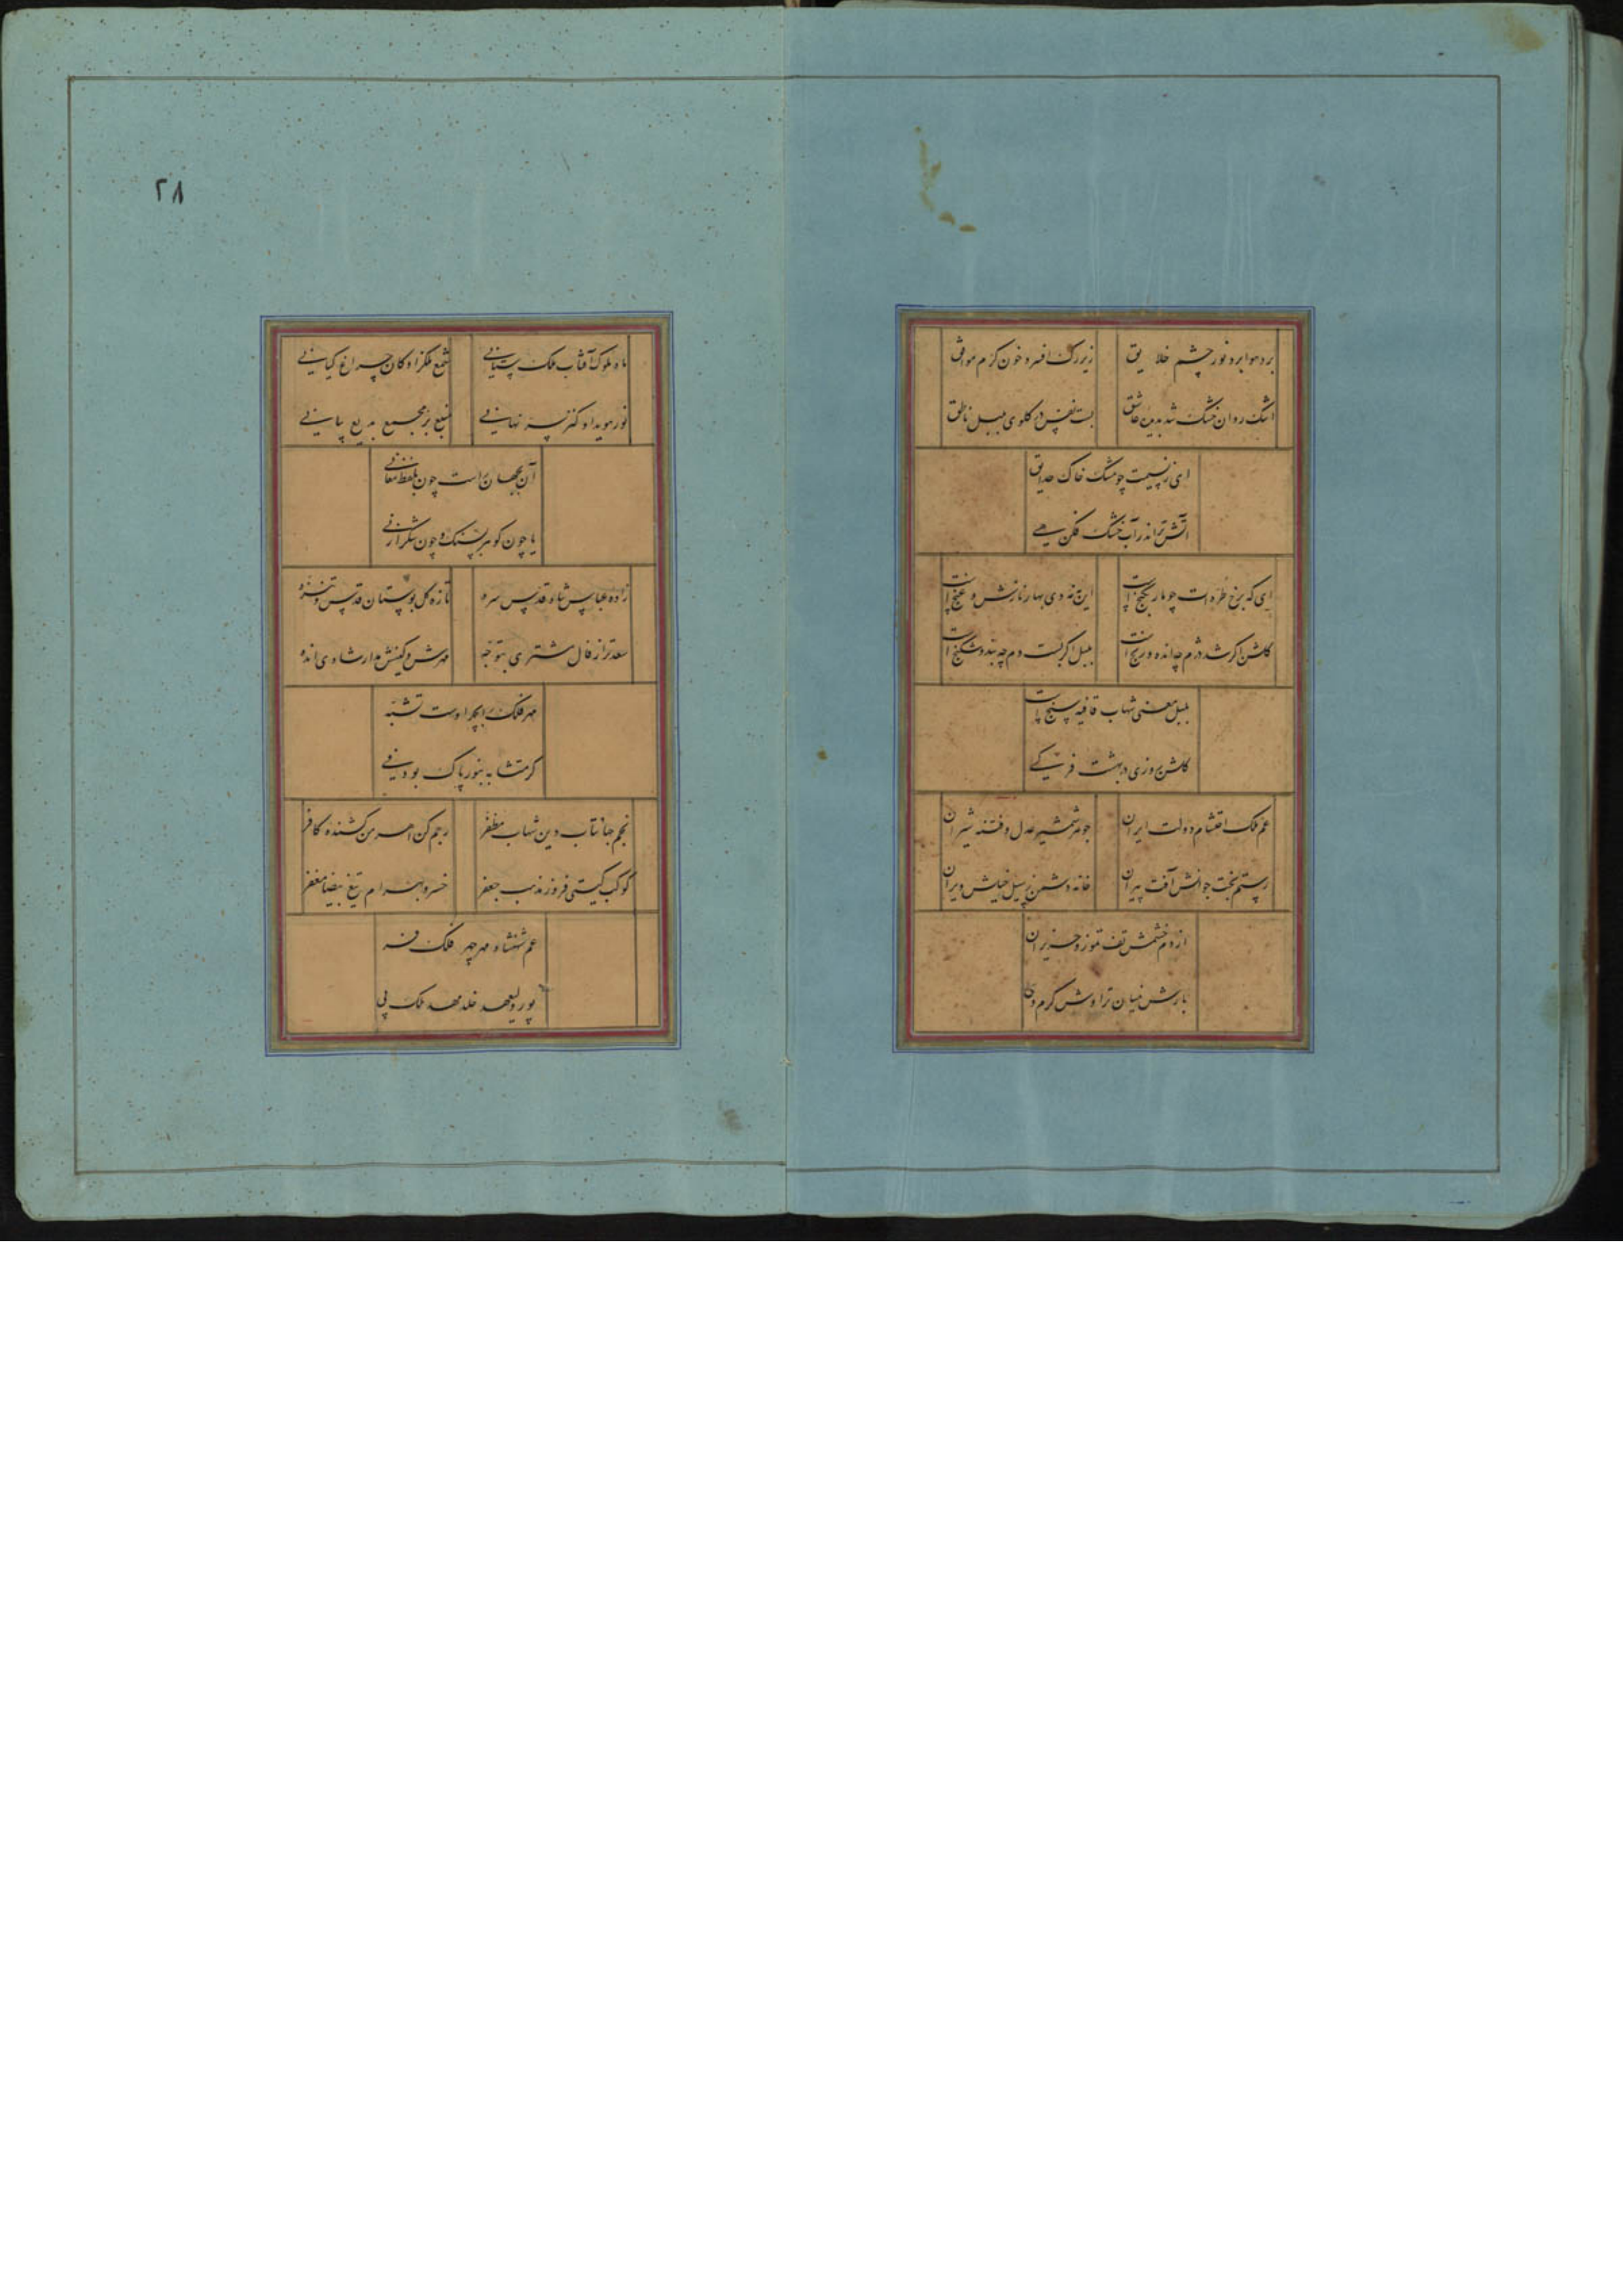 برد هوا برد نور چشم خلایق
زیر رگ افسرد خون گرم موافق
اشک روان خشک شد بدیده عاشق
بست نفس در گلوی بلبل ناطق
ای ز نسیمت چو مشک خاک حدایق
آتش تر اندر آب خشک فکن هی
ای که برخ طره‌ات چو مار بگنج است
این نه دی بهار نازش و غنج است
گلشن اگر شد دژم چه انده و رنج است
بلبل اگر بست دم چه بند و شکنج است
بلبل معنی شهاب قافیه سنج است
گلشن روزی بهشت فرت کی
عم ملک احتشام دولت ایران
جوهر شمشیر عدل و فتنه شیران
رستم بخت جوانش آفت پیران
خانه دشمن ز سیل خیلش ویران
از دم خشمش تف تموز و حزیران
بارش نیسان تراوش کرم وی
۲۸
ماه ملوک آفتاب ملک ستانی
شمع ملکزادگان چراغ کیانی
نور هویدا و کنز نهانی
منبع بر مجمع بدیع بیانی
آن بجهان است چون بلفظ معانی
یا چون گوهر بسنگ و چون شکر از نی
زاده عباس شاه قدس سره
تازه گل بوستان قدس و تنزه
سعدتر از فال مشتری بتوجه
مهرش و کینش مدار شادی و انده
مهر فلک را بچهر اوست تشبه
گر متشابه بنور پاک بود فی
نجم جهانتاب دین شهاب مظفر
رجم کن اهرمن کشنده کافر
کوکب گیتی فروز مذهب جعفر
خسرو بهرام تیغ بیضا مغفر
عم شهنشاه مهر چهر فلک فر
پور ولیعهد خلد مهد ملک پی